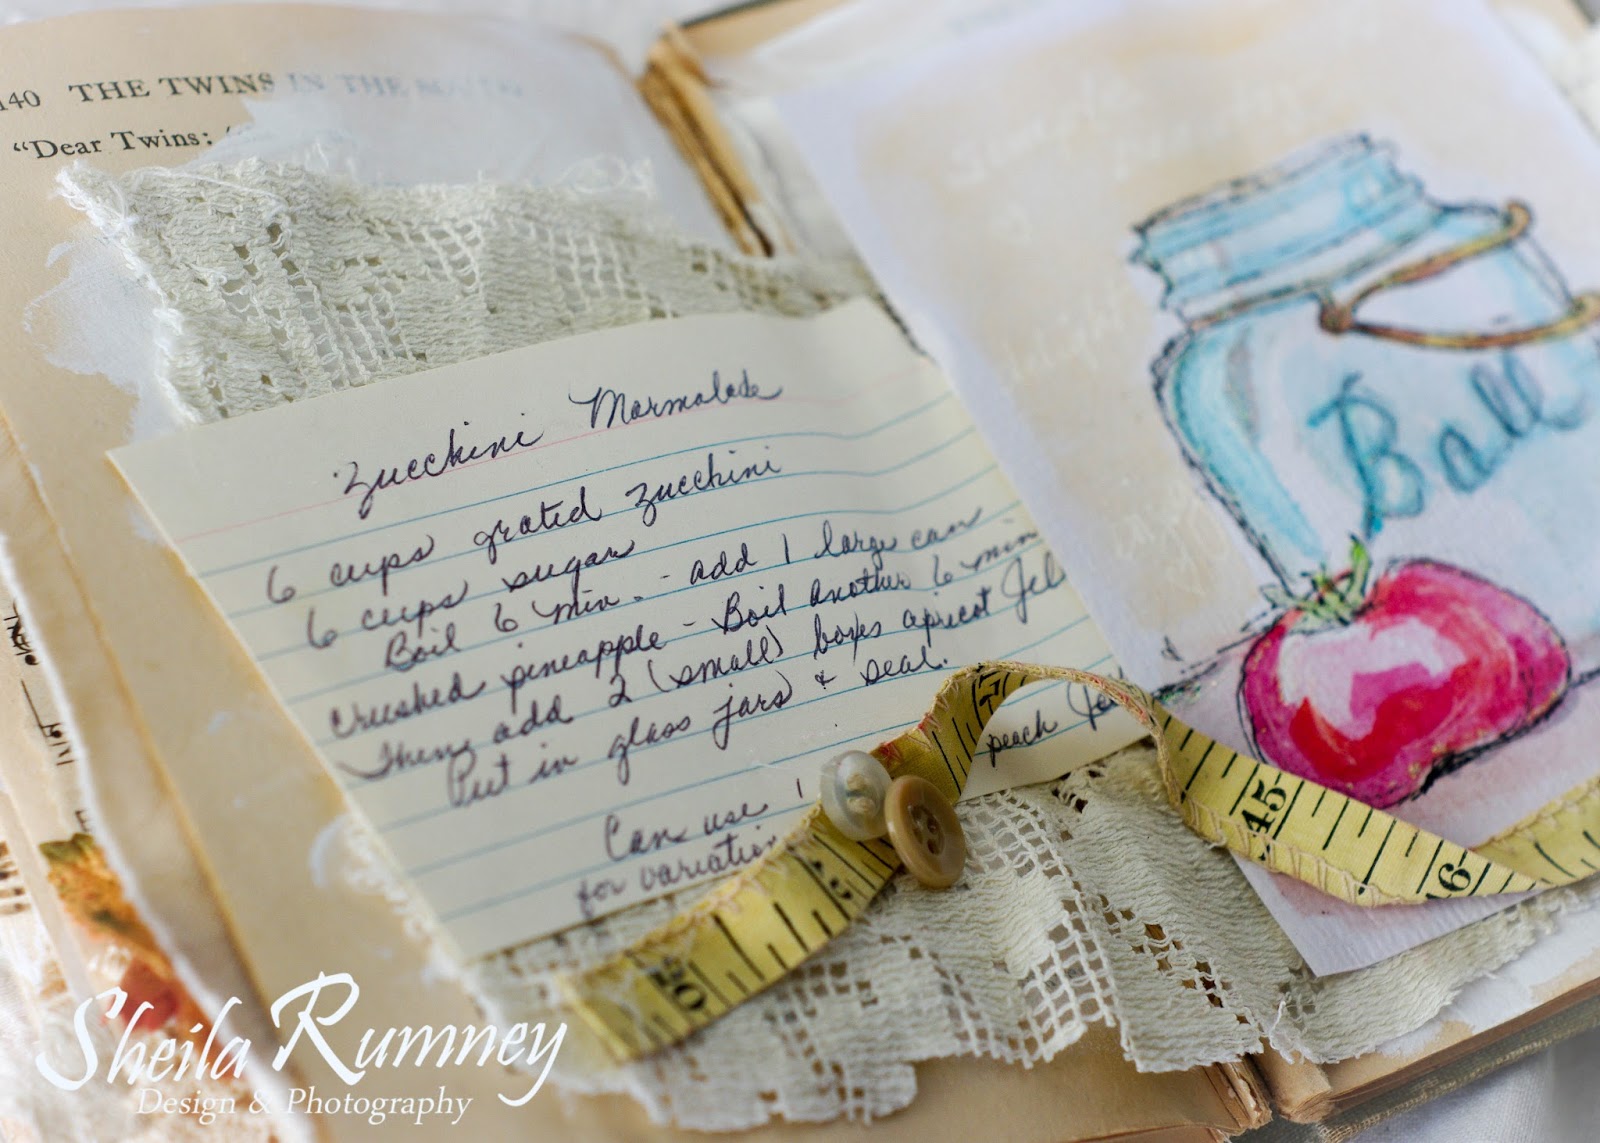 140 THE TWINS IN THE
"Dear Twins:
Zucchini Marmalade
6 cups grated zucchini
6 cups sugar
Boil 6 min. - add 1 large can
crushed pineapple - Boil another 6 min
Then add 2 (small) boxes apricot Jel
Put in glass jars & seal.
Can use 1
peach Jel
for variation
Ball
45
46
Sheila Rumney
Design & Photography